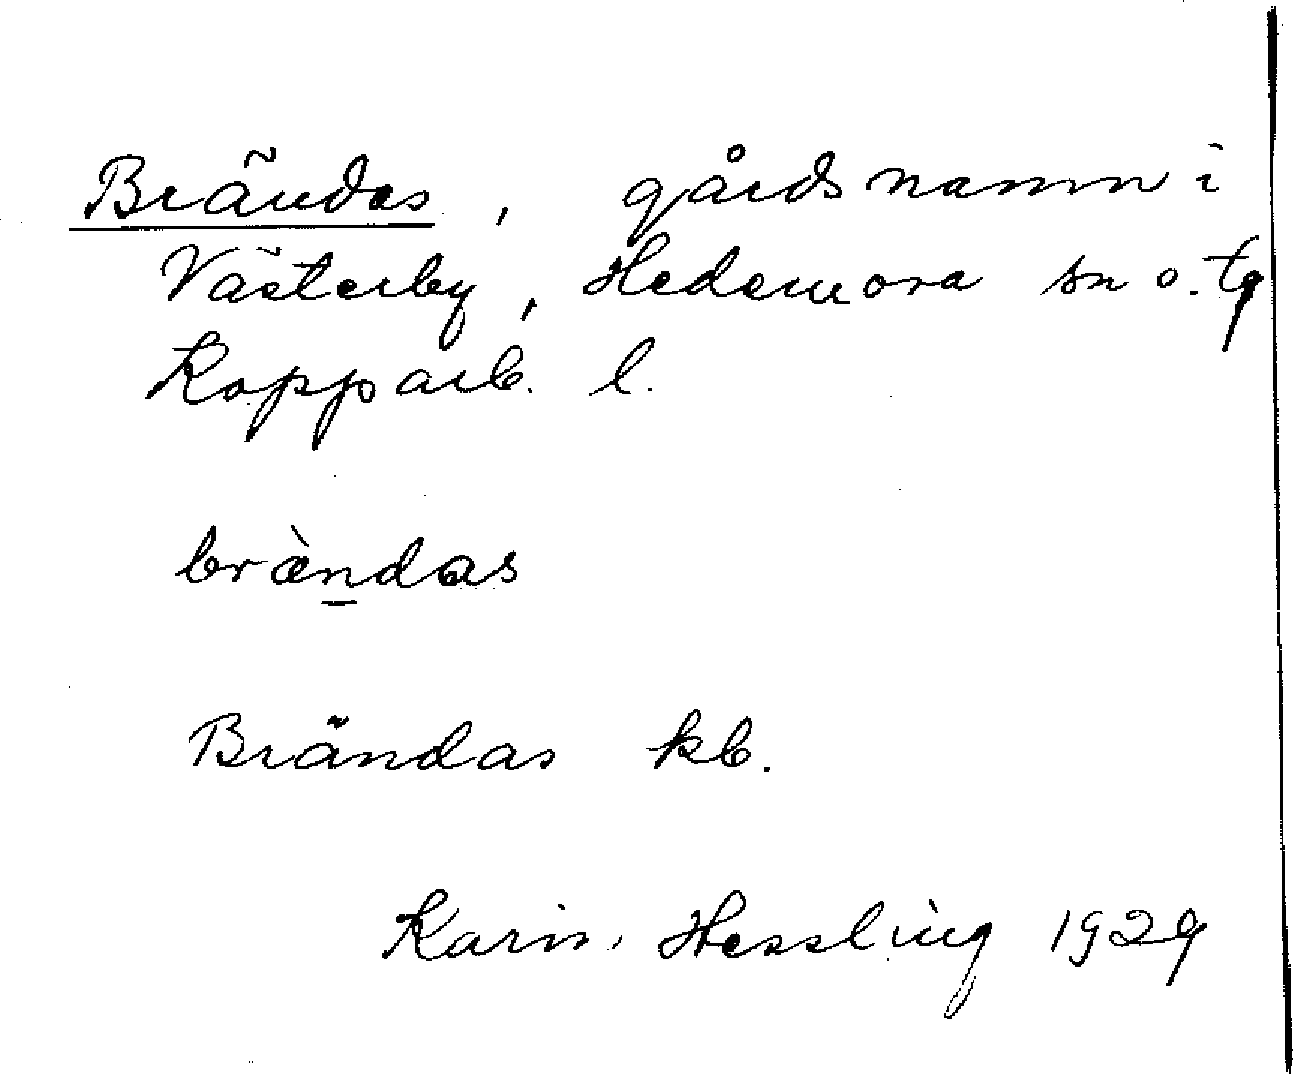 Brändas, gårdsnamn i
Västerby, Hedemora sn o. tg
Kopparb. l.
brànd̲as
Brändas kb.
Karin Hessling 1929